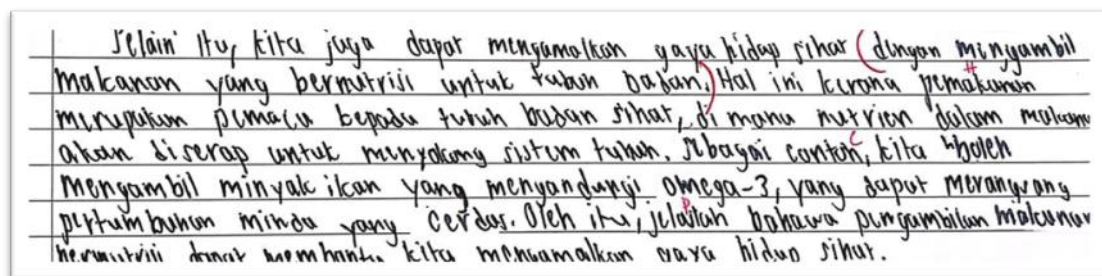 Selain itu, kita juga dapat mengamalkan gaya hidup sihat dengan mengambil
makanan yang bernutrisi untuk tubuh badan. Hal ini kerana pemakanan
merupakan pemacu kepada tubuh badan sihat, di mana nutrien dalam makanan
akan diserap untuk menyokong sistem tubuh. Sebagai contoh, kita boleh
mengambil minyak ikan yang mengandungi omega-3, yang dapat merangsang
pertumbuhan minda yang cerdas. Oleh itu, jelaslah bahawa pengambilan makanan
bernutrisi dapat membantu kita mengamalkan gaya hidup sihat.